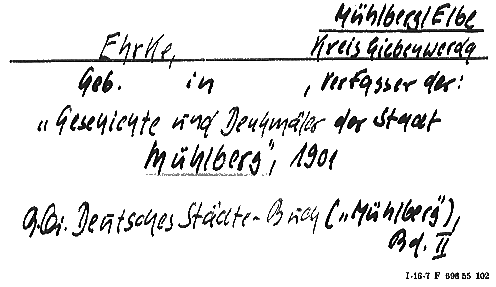 Mühlberg/Elbe
Ehrke, Kreis Liebenwerda
Geb. in , Verfasser der:
„Geschichte und Denkmäler der Stadt
Mühlberg", 1901
Deutsches Städte-Buch („Mühlberg"),
Bd. II
I-16-7 F 696 55 102